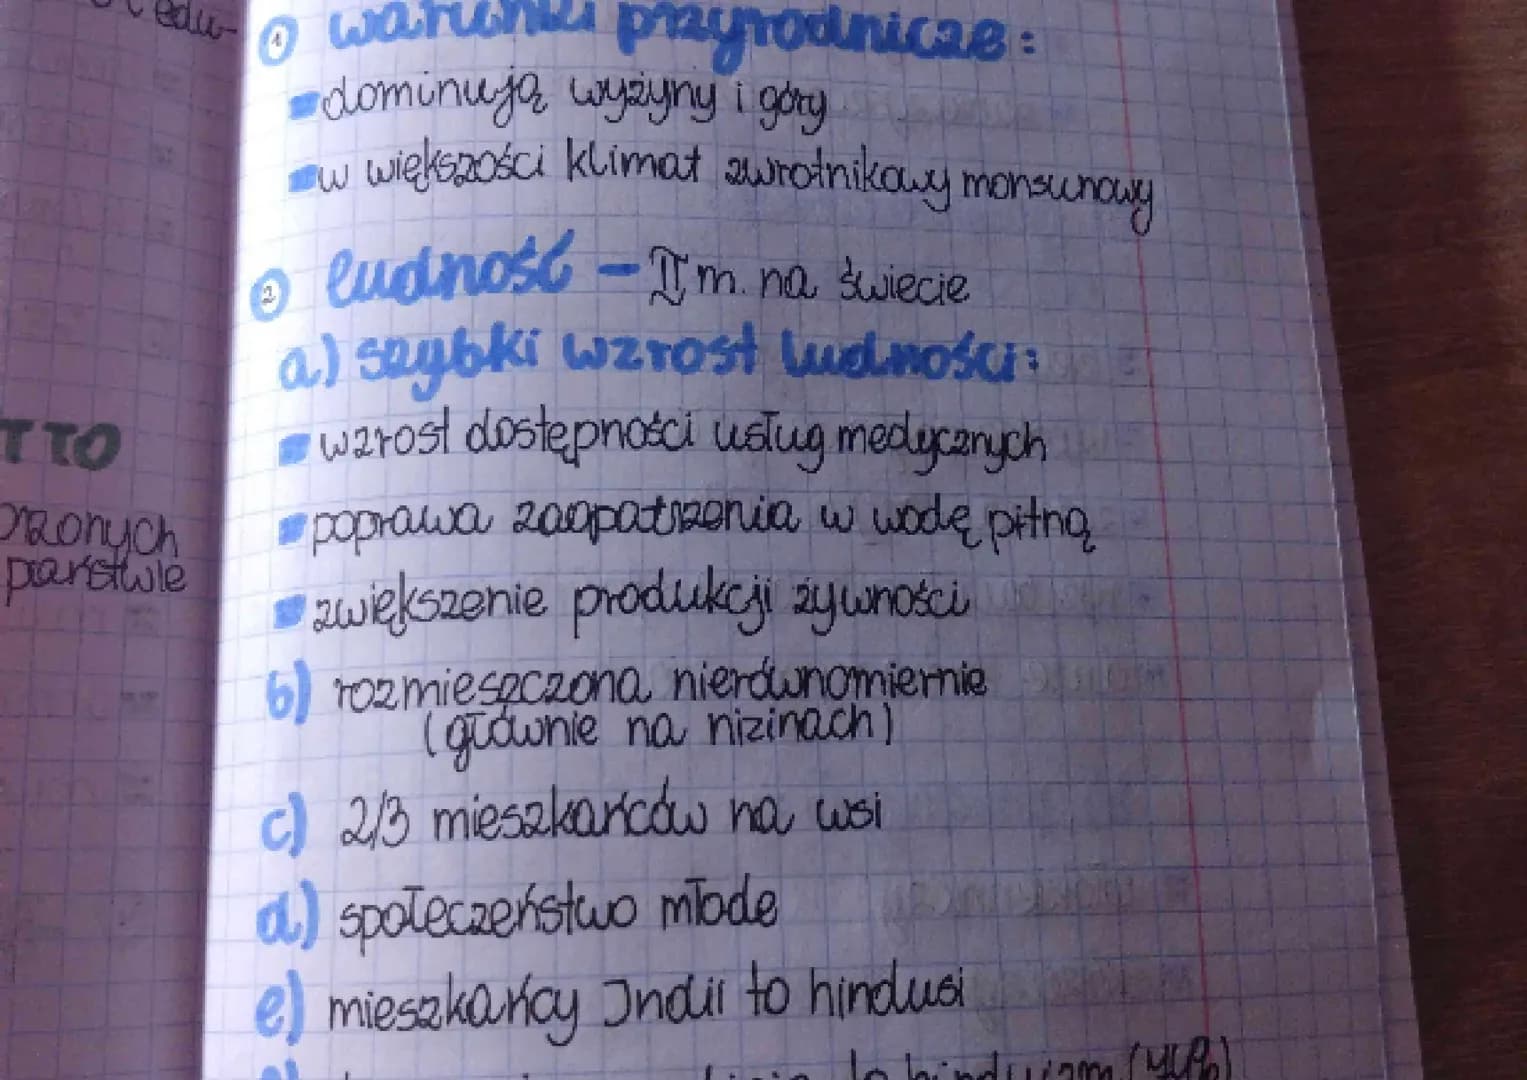 ① warunki przyrodnicze:
dominują wyżyny i góry
w większości klimat zwrotnikowy monsunowy
② ludność - II m. na świecie
a.) szybki wzrost ludności:
wzrost dostępności usług medycznych
poprawa zaopatrzenia w wodę pitną
zwiększenie produkcji żywności
b) rozmieszczona nierównomiernie
(głównie na nizinach)
c) 2/3 mieszkańców na wsi
d.) społeczeństwo młode
e) mieszkańcy Indii to hindusi
to hinduizm
TTO
państwie